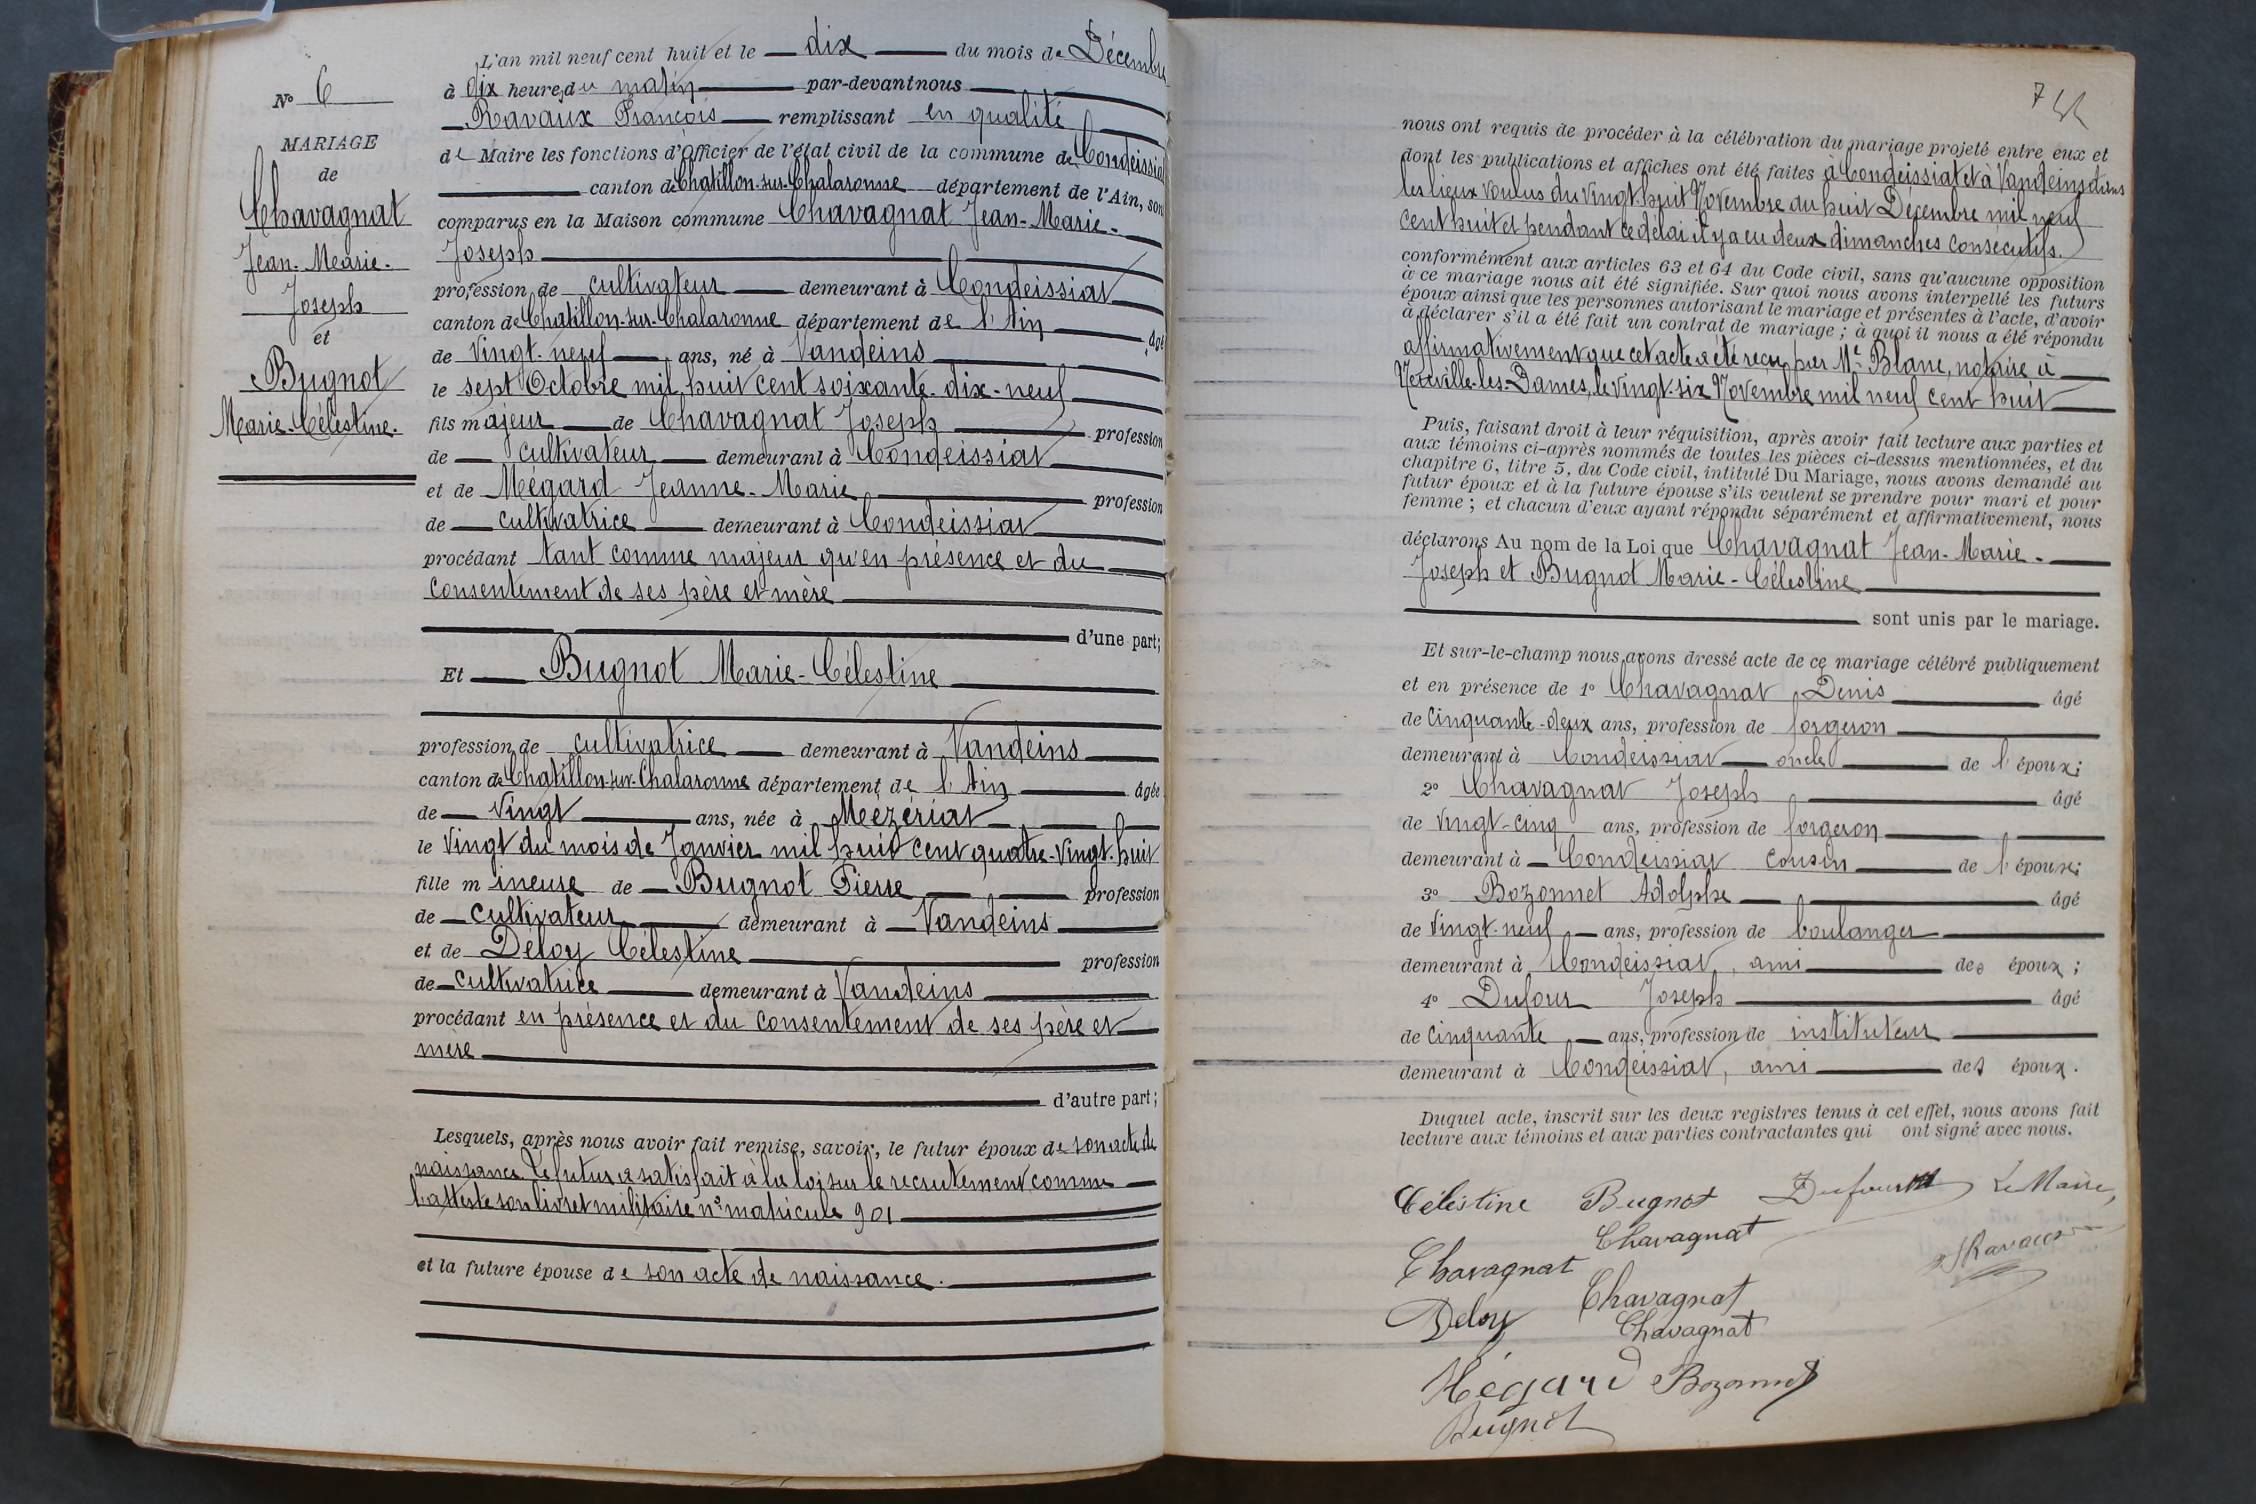 N° 6
MARIAGE
de
Chavagnat
Jean-Marie-
Joseph
et
Bugnot
Marie-Célestine.
L'an mil neuf cent huit et le dix du mois de Décembre
à dix heures du matin par-devant nous
Ravaux François remplissant en qualité
de Maire les fonctions d'Officier de l'état civil de la commune de Condeissiat
canton de Chatillon-sur-Chalaronne département de l'Ain, sont
comparus en la Maison commune Chavagnat Jean-Marie-
Joseph
profession de cultivateur demeurant à Condeissiat
canton de Chatillon-sur-Chalaronne département de l'Ain, âgé
de vingt-neuf ans, né à Vandeins
le sept Octobre mil huit cent soixante-dix-neuf
fils majeur de Chavagnat Joseph profession
de cultivateur demeurant à Condeissiat
et de Mégard Jeanne-Marie profession
de cultivatrice demeurant à Condeissiat
procédant tant comme majeur qu'en présence et du
consentement de ses père et mère
d'une part;
Et Bugnot Marie-Célestine
profession de cultivatrice demeurant à Vandeins
canton de Chatillon-sur-Chalaronne département de l'Ain âgée
de vingt ans, née à Mézériat
le vingt du mois de Janvier mil huit cent quatre-vingt-huit
fille mineure de Bugnot Pierre profession
de cultivateur demeurant à Vandeins
et de Déloy Célestine profession
de cultivatrice demeurant à Vandeins
procédant en présence et du consentement de ses père et
mère
d'autre part;
Lesquels, après nous avoir fait remise, savoir, le futur époux de son acte de
naissance. Le futur a satisfait à la loi sur le recrutement comme
l'atteste son livret militaire n° matricule 901
et la future épouse de son acte de naissance.
7
nous ont requis de procéder à la célébration du mariage projeté entre eux et
dont les publications et affiches ont été faites à Condeissiat et à Vandeins dans
les lieux voulus du vingt-huit Novembre au huit Décembre mil neuf
cent huit et pendant ce délai il y a eu deux dimanches consécutifs.
conformément aux articles 63 et 64 du Code civil, sans qu'aucune opposition
à ce mariage nous ait été signifiée. Sur quoi nous avons interpellé les futurs
époux ainsi que les personnes autorisant le mariage et présentes à l'acte, d'avoir
à déclarer s'il a été fait un contrat de mariage; à quoi il nous a été répondu
affirmativement que cet acte a été reçu par Me Blanc, notaire à
Neuville-les-Dames, le vingt-six Novembre mil neuf cent huit
Puis, faisant droit à leur réquisition, après avoir fait lecture aux parties et
aux témoins ci-après nommés de toutes les pièces ci-dessus mentionnées, et du
chapitre 6, titre 5, du Code civil, intitulé Du Mariage, nous avons demandé au
futur époux et à la future épouse s'ils veulent se prendre pour mari et pour
femme; et chacun d'eux ayant répondu séparément et affirmativement, nous
déclarons Au nom de la Loi que Chavagnat Jean-Marie-
Joseph et Bugnot Marie-Célestine
sont unis par le mariage.
Et sur-le-champ nous avons dressé acte de ce mariage célébré publiquement
et en présence de 1° Chavagnat Denis âgé
de cinquante-deux ans, profession de forgeron
demeurant à Condeissiat oncle de l'époux;
2° Chavagnat Joseph âgé
de vingt-cinq ans, profession de forgeron
demeurant à Condeissiat cousin de l'époux;
3° Bozonnet Adolphe âgé
de vingt-neuf ans, profession de boulanger
demeurant à Condeissiat, ami des époux;
4° Dufour Joseph âgé
de cinquante ans, profession de instituteur
demeurant à Condeissiat, ami des époux.
Duquel acte, inscrit sur les deux registres tenus à cet effet, nous avons fait
lecture aux témoins et aux parties contractantes qui ont signé avec nous.
Célestine Bugnot Dufour Le Maire,
Chavagnat
Chavagnat Ravaux
Deloy Chavagnat
Chavagnat
Mégard Bozonnet
Bugnot